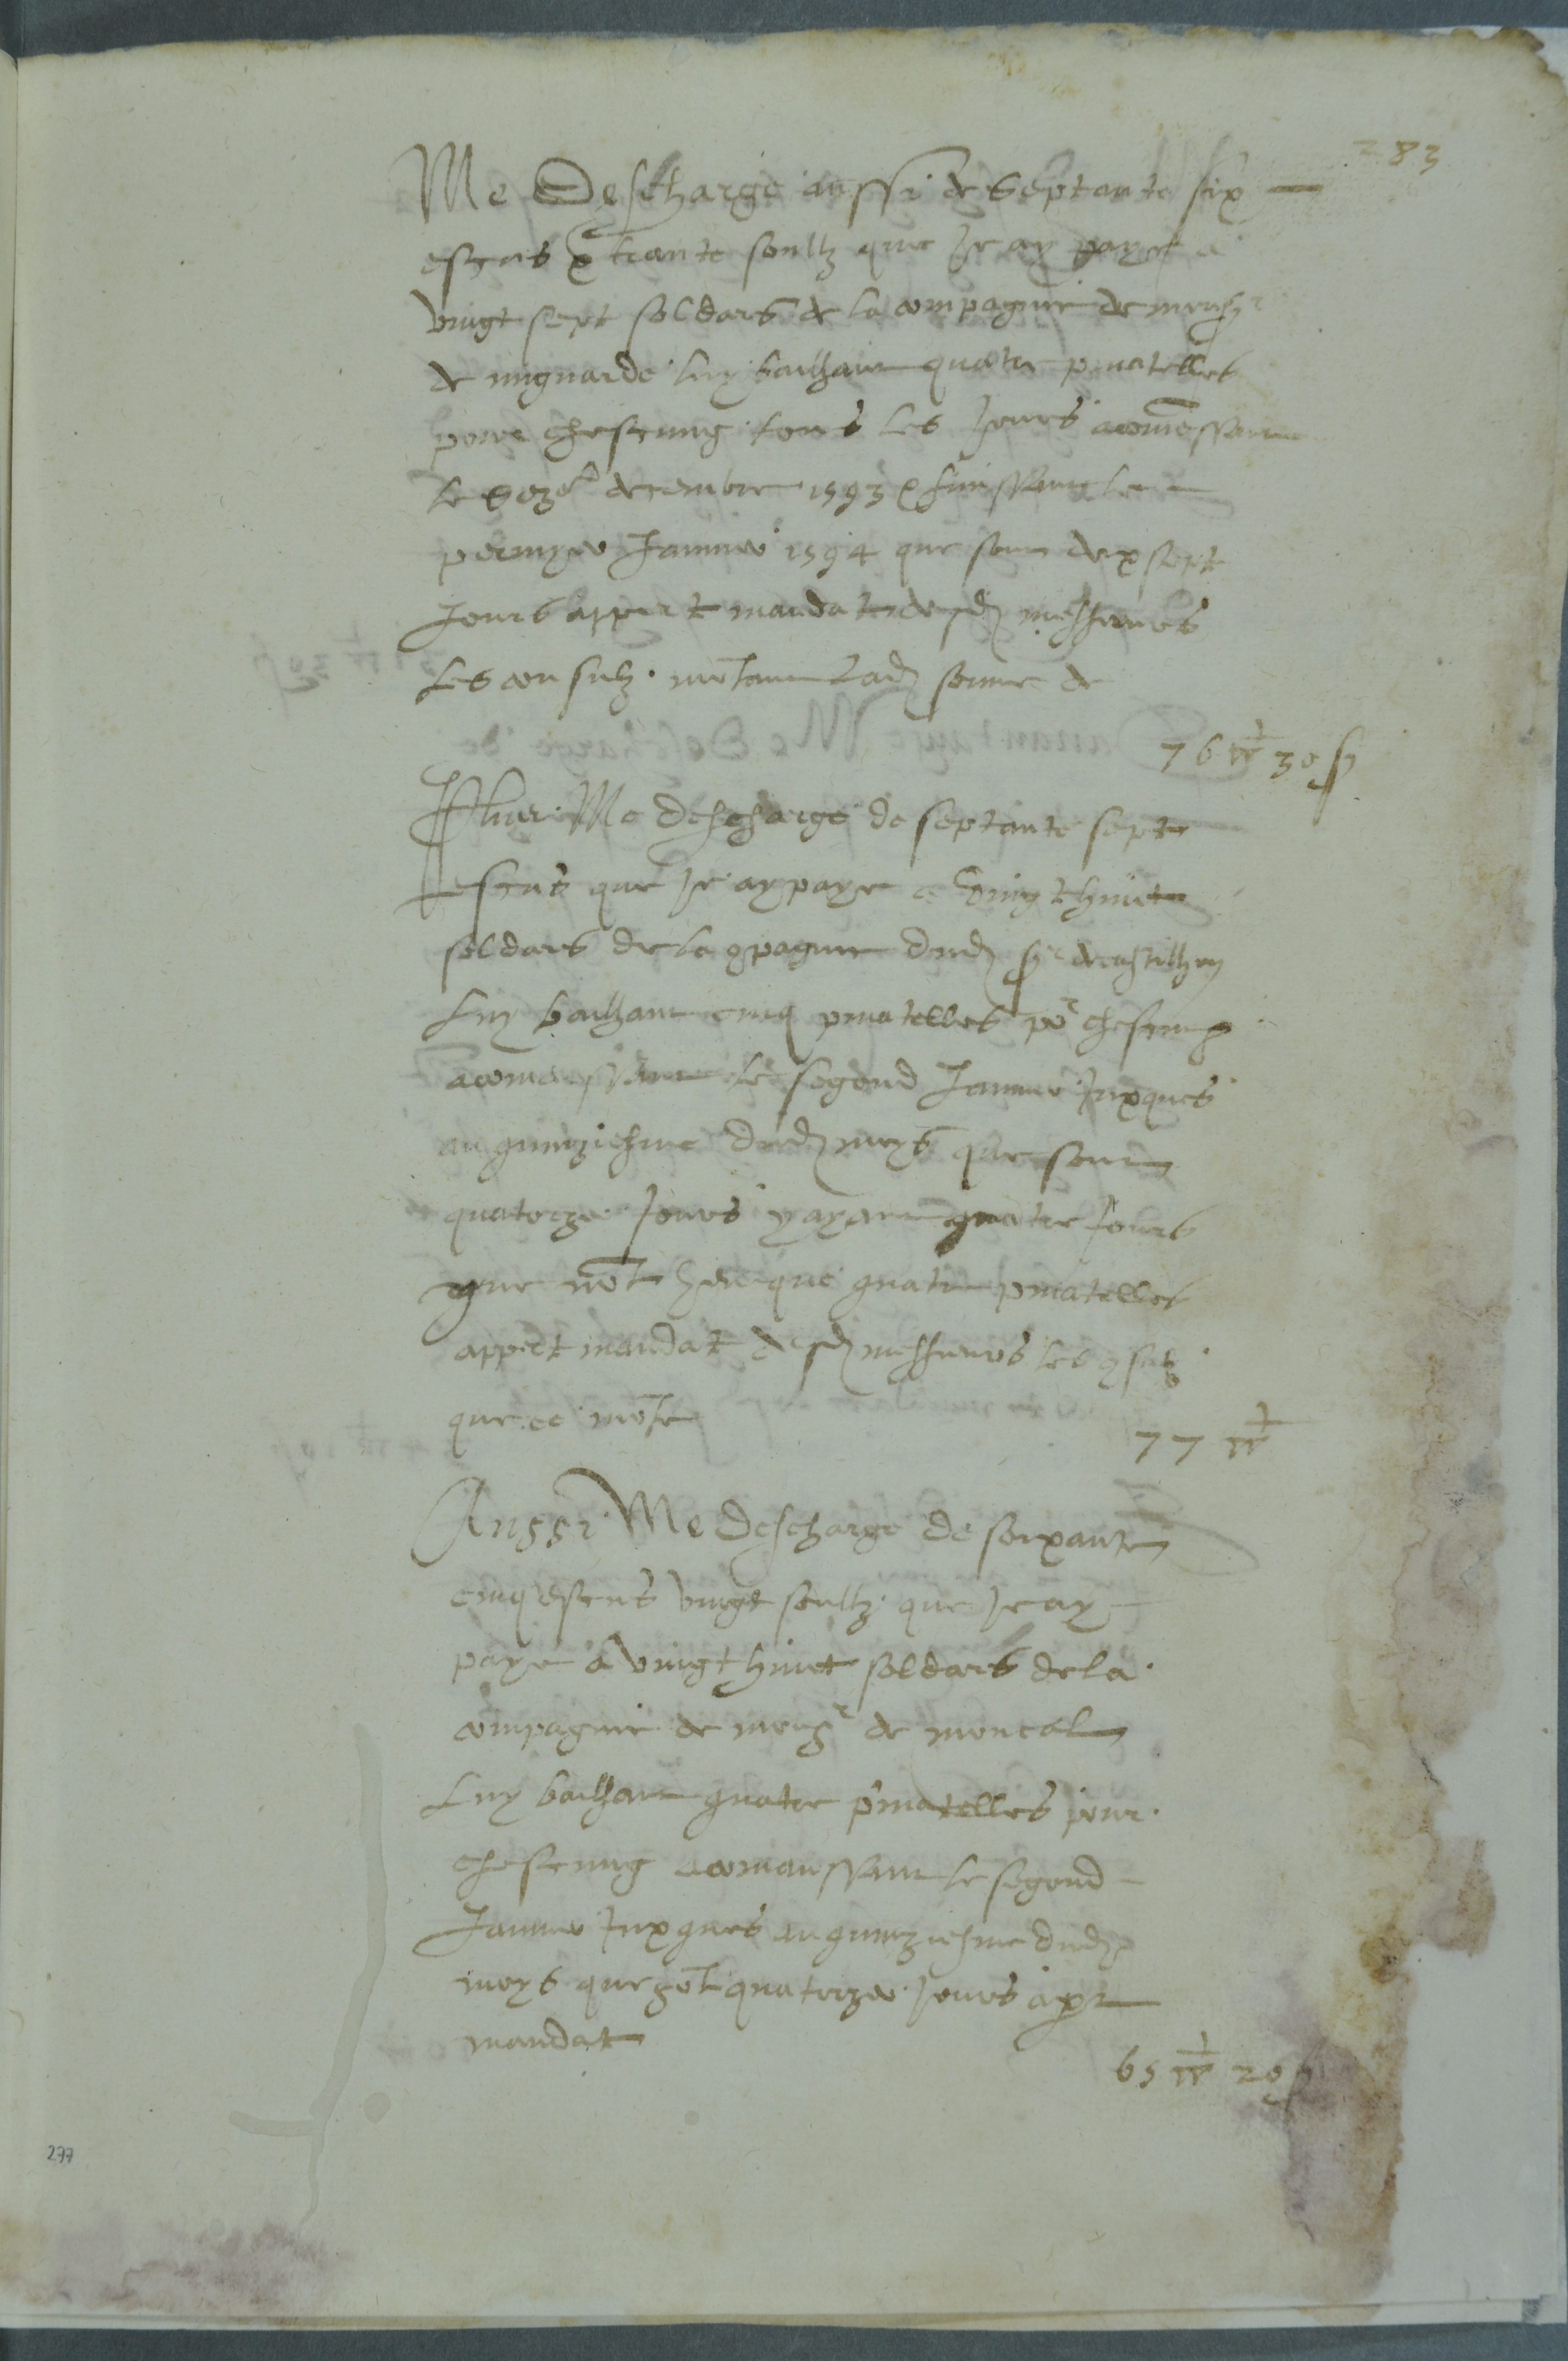 283
Me Descharge aussi de Septante six
escus & trante soultz que Je ay paye a
vingt sept soldars de la compagnie de monsr
de mignarde luy bailhant quatre pinatelles
pour chescung tous les Jours acomēssant
le sezē decembre 1593 & finissant le
permyer Janvier 1594 que sont dexsept
Jours appert mandat desd messieurs
les consulz montant lad somme de
76 30 s
Plus Me descharge de septante sept
escus que Je ay paye a vingt huict
soldars de la 9pagnie dud sr de castilhon
luy bailhant cinq pinatelles pr chescung
acomenssant le segond Janvier Juxques
au quinziesme dud moys que sont
quatorze Jours y ayant quatre Jours
que nōt heu que quatre pinatelles
appert mandat desd messieurs les 9sulz
que ce mōte
77
Aussi Me descharge de soixante
cinq escus vingt soultz que Je ay
paye a vingt huict soldars de la
compagnie de monsr de moncal
luy bailhant quatre pinatelles pour
chescung acomanssant le segond
Janvier Juxques au quinziesme dud
moys que sōt quatorze Jours apt
mandat
65 20 s
277